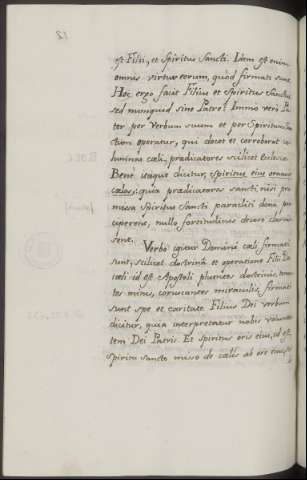 est Filii, et Spiritus Sancti. Idem est enim
omnis virtus eorum, quòd firmati sunt.
Hoc ergo facit Filius et Spiritus Sanctus
sed numquid sine Patre? Immo verò Pa-
ter per Verbum suum et per Spiritum
operatur, qui docet et corroborat co-
lumnas cæli, prædicatores scilicet Ecclesiæ.
Bene itaque dicitur, Spiritus eius ornavit
cælos; quia prædicatores sancti, nisi pro-
missa Spiritus Sancti paracliti dona per-
ciperent, nullo fortitudinis decore claruis-
sent.
Verbo igitur Domini cæli firmati
sunt, scilicet doctrinâ et operatione Filii Dei
cæli id est Apostoli pluentes doctrinis, tonan-
tes minis, coruscantes miraculis, firmati
sunt spe et caritate. Filius Dei verbum
dicitur, quia interpretatur nobis volunta-
tem Dei Patris. Et spiritus oris eius, id est
Spiritu Sancto misso de cælis ab ore eius,